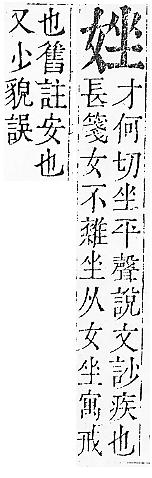 㛗
才何切坐平聲說文訬疾也
長箋女不雜坐从女坐寓戒
也舊註安也
又少貌誤